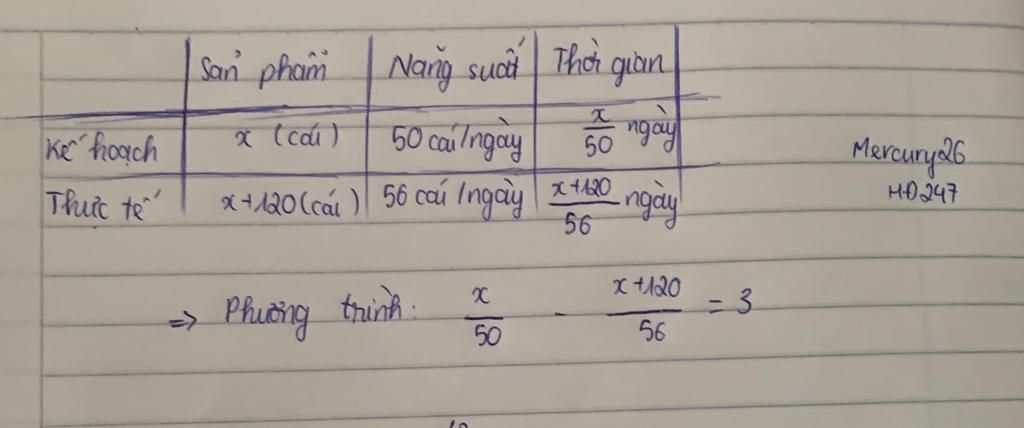 Sản phẩm Năng suất Thời gian
Kế hoạch x (cái) 50 cái/ngày x/50 ngày
Thực tế x+120 (cái) 56 cái/ngày x+120/56 ngày
Mercury26
HĐ247
=> Phương trình: x/50 - x+120/56 = 3